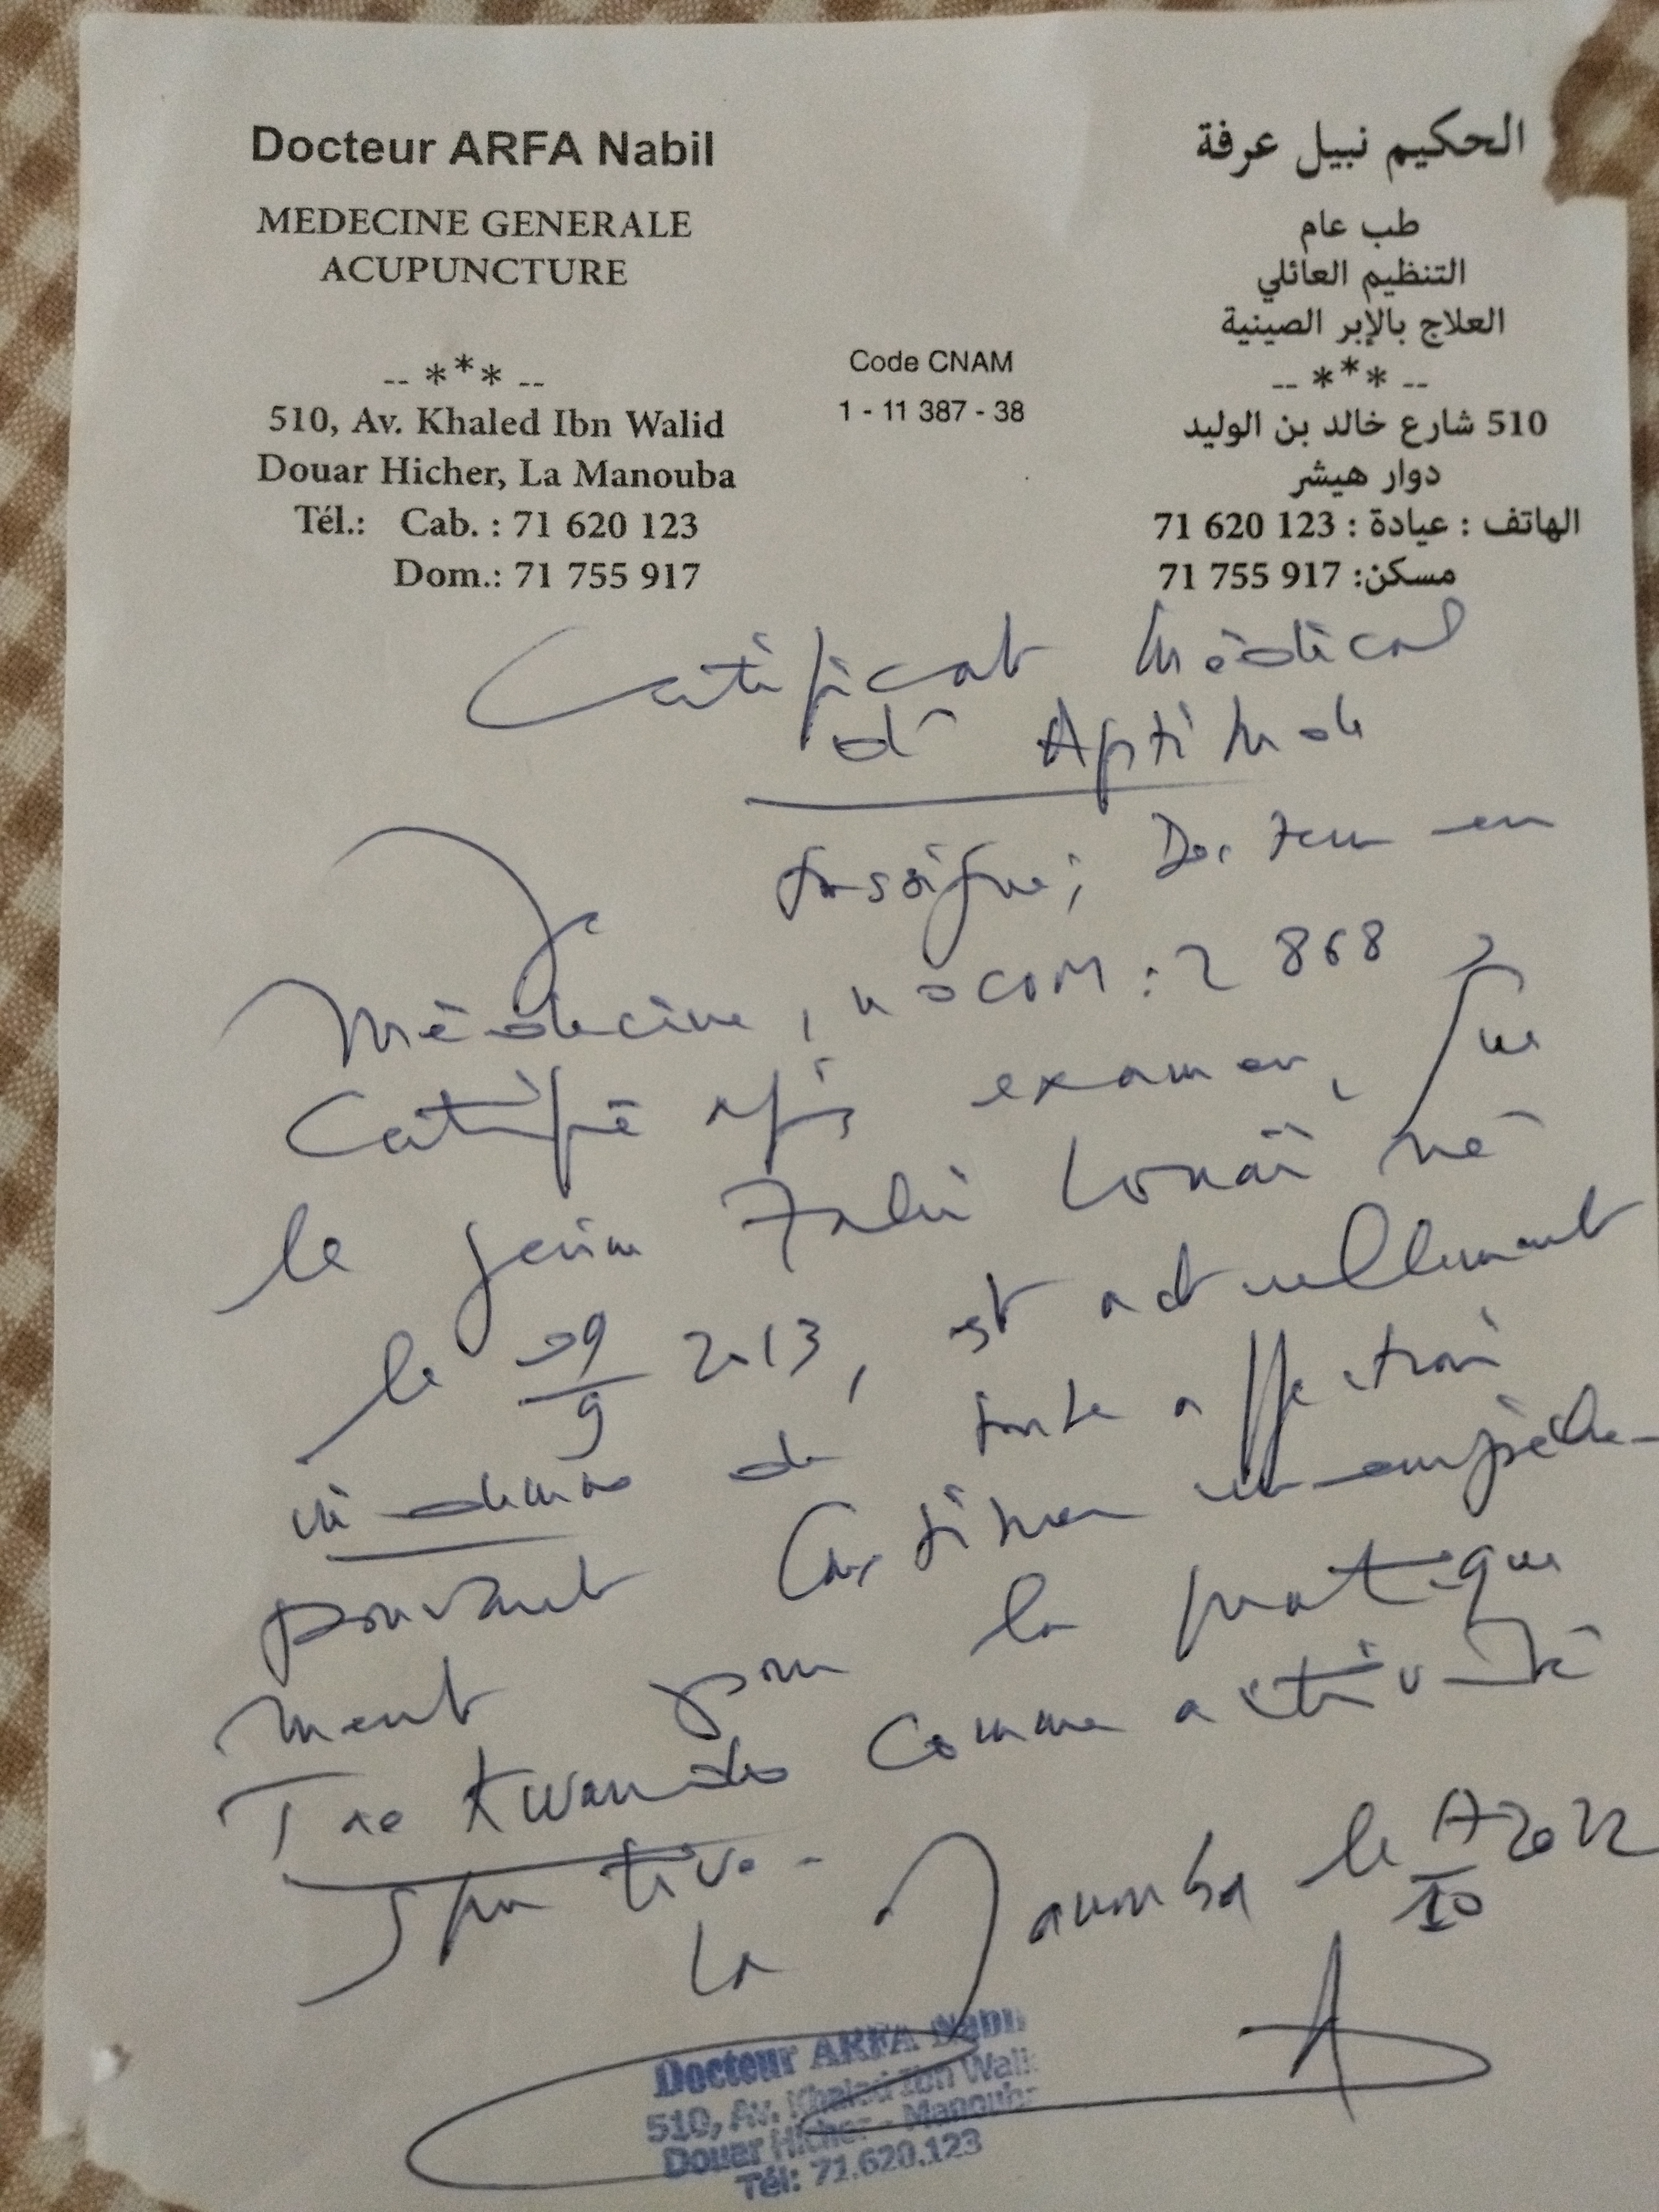 Docteur ARFA Nabil
MEDECINE GENERALE
ACUPUNCTURE
-- *** --
510, Av. Khaled Ibn Walid
Douar Hicher, La Manouba
Tél.: Cab. : 71 620 123
Dom.: 71 755 917
Code CNAM
1 - 11 387 - 38
الحكيم نبيل عرفة
طب عام
التنظيم العائلي
العلاج بالإبر الصينية
-- *** --
510 شارع خالد بن الوليد
دوار هيشر
الهاتف : عيادة : 123 620 71
مسكن: 917 755 71
Certificat Médical
d' Aptitude
Je soussigné, Docteur en
Médecine, : 2 868,
Certifie après examen, que
le jeune Louaï né
le 09/9 2013, est actuellement
indemne de toute affection
pouvant constituer un empêche-
ment pour la pratique
Tae Kwando comme activité
sportive.
La Manouba le 17/10 2022
Docteur ARFA Nabil
510, Av. Khaled Ibn Wali
Douar Hicher - Manouba
Tél: 71.620.123